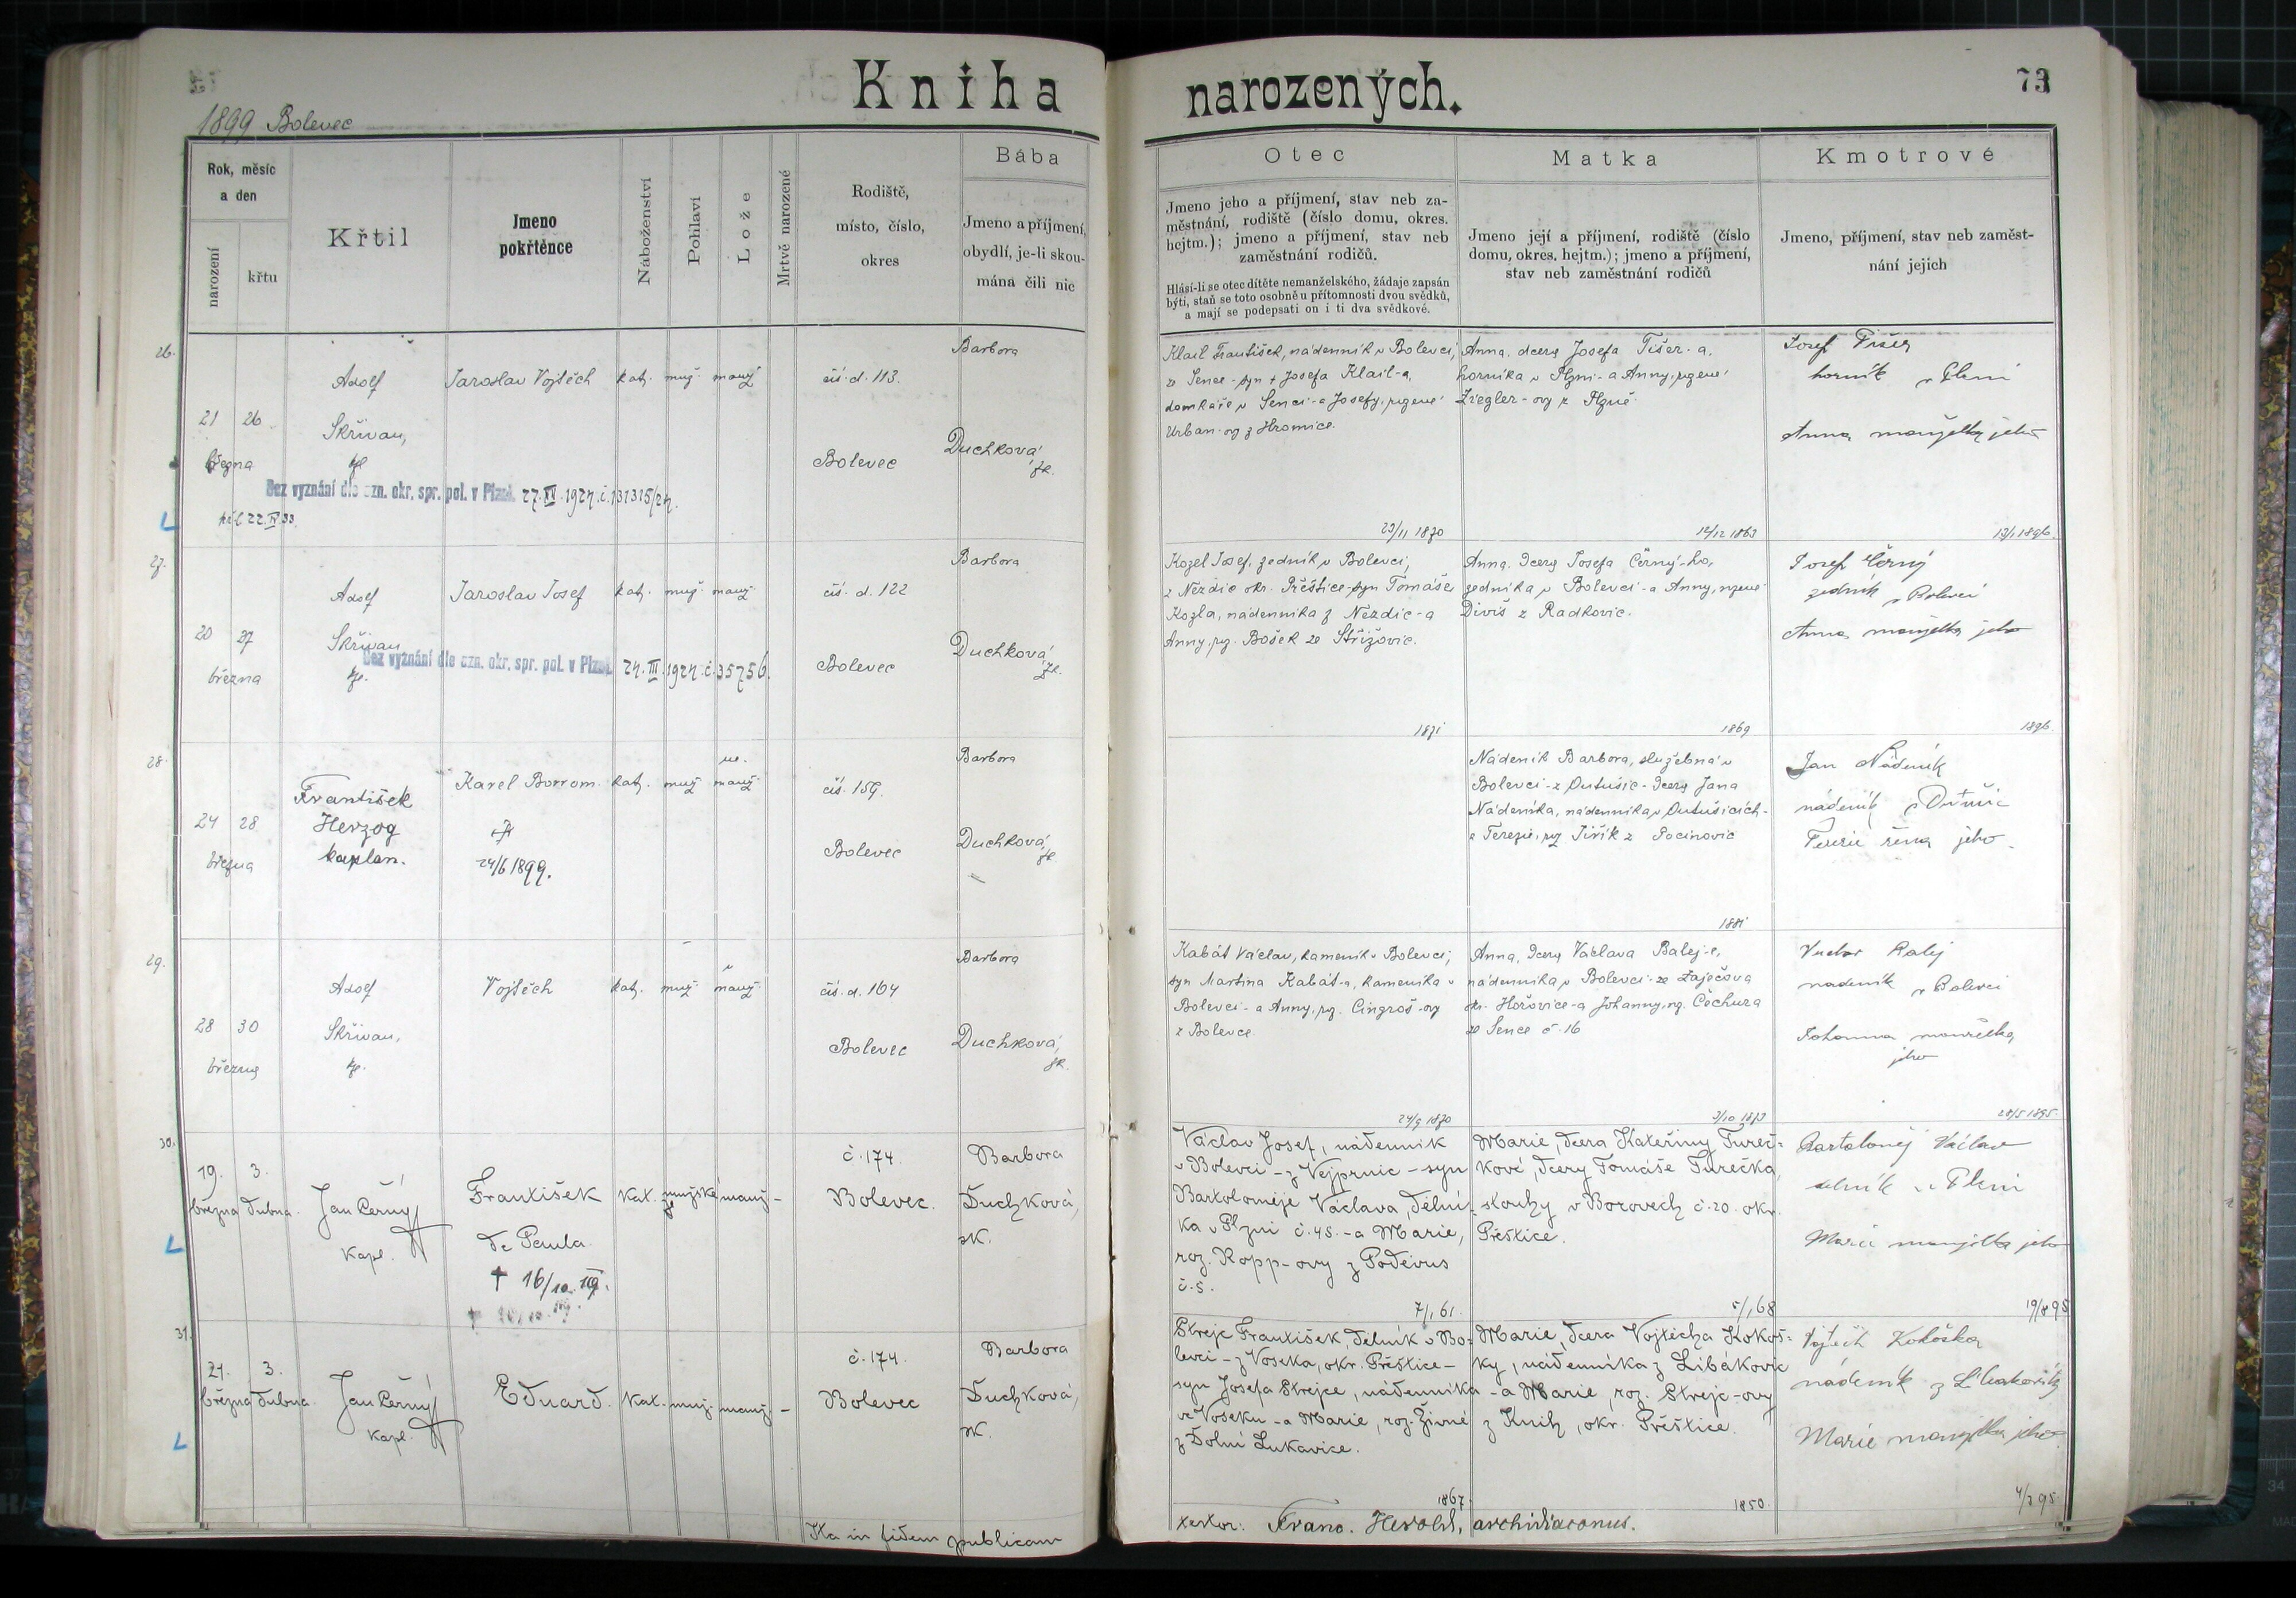 Kniha narozených.
73
1899 Bolevec
Rok, měsíc
a den
narození
křtu
Křtil
Jmeno
pokřtěnce
Náboženství
Pohlaví
Lože
Mrtvě narozené
Rodiště,
místo, číslo,
okres
Bába
Jmeno a příjmení,
obydlí, je-li skou-
mána čili nic
Otec
Jmeno jeho a příjmení, stav neb za-
městnání, rodiště (číslo domu, okres.
hejtm.); jmeno a příjmení, stav neb
zaměstnání rodičů.
Hlásí-li se otec dítěte nemanželského, žádaje zapsán
býti, staň se toto osobně u přítomnosti dvou svědků,
a mají se podepsati on i ti dva svědkové.
Matka
Jmeno její a příjmení, rodiště (číslo
domu, okres. hejtm.); jmeno a příjmení,
stav neb zaměstnání rodičů
Kmotrové
Jmeno, příjmení, stav neb zaměst-
nání jejich
26.
21 26
března
Adolf
Skřivan,
Jaroslav Vojtěch
kat. muž. manž.
čís. d. 113.
Bolevec
Barbora
Duchková
zk.
Bez vyznání dle ozn. okr. spr. pol. v Plzni 27.IV.1924.č.131315/24.
22.IV.33.
Klail František, nádenník v Bolevci,
ze Sence - syn † Josefa Klail-a,
domkáře v Senci - a Josefy, rozené
Urban-ovy z Hromice.
23/11 1870
Anna, dcera Josefa Tišer-a,
horníka v Plzni - a Anny, rozené
Ziegler-ovy z Plzně.
12/12 1863
Josef Tišer
horník v Plzni
Anna manželka jeho
27.
20 27
března
Adolf
Skřivan
Jaroslav Josef
kat. muž. manž.
čís. d. 122
Bolevec
Barbora
Duchková,
zk.
Bez vyznání dle ozn. okr. spr. pol. v Plzni 24.III.1924.č.35756.
Kozel Josef, zedník v Bolevci,
z Nezdic okr. Přeštice - syn Tomáše
Kozla, nádenníka z Nezdic - a
Anny, roz. Bošek ze Střižovic.
1871
Anna, dcera Josefa Černý-ho,
zedníka v Bolevci - a Anny, rozené
Diviš z Radkovic.
1869
Josef Černý
zedník v Bolevci
Anna manželka jeho
1896
28.
24 28
března
František
Herzog
kaplan.
Karel Borrom.
†
24/6 1899.
kat. muž.
ne.
manž.
čís. 159.
Bolevec
Barbora
Duchková,
zk.
Nádeník Barbora, služebná v
Bolevci - z Druhušic - dcera Jana
Nádeníka, nádenníka
a Terezie, roz. Jiřík z Pocinovic
1881
Jan Nádeník
nádeník
Terezie žena jeho.
29.
28 30
března
Adolf
Skřivan,
Vojtěch
kat. muž. manž.
čís. d. 164
Bolevec
Barbora
Duchková,
zk.
Kabát Václav, kameník v Bolevci,
syn Martina Kabát-a, kameníka v
Bolevci - a Anny, roz. Cingroš-ovy
z Bolevce.
24/9 1870
Anna, dcera Václava Balej-e,
nádenníka v Bolevci - ze Zaječova
okr. Hořovice - a Johanny, roz. Čechura
ze Sence č. 16
3/10 1873
Balej
nádeník v Bolevci
Johanna manželka
jeho
28/5 1895
30.
19. 3.
března dubna.
Jan Černý
kapl.
František
de Paula.
† 16/10.
kat. mužské manž. -
č. 174.
Bolevec.
Barbora
Duchková,
zk.
Václav Josef, nádenník
v Bolevci - z Vejprnic - syn
Bartoloměje Václava, dělní-
ka v Plzni č. 45. - a Marie,
roz. Kopp-ovy z Poděvus
č. 5.
7/1 61.
Marie, dcera Kateřiny Tureč-
kové, dcery Tomáše Turečka,
slouhy v Borovech č. 20. okr.
Přeštice.
5/1 68
Bartoloměj Václav
dělník v Plzni
Marie manželka jeho
31.
21. 3.
března dubna.
Jan Černý
kapl.
Eduard.
kat. muž. manž. -
č. 174.
Bolevec
Barbora
Duchková,
zk.
Strejc František, dělník v Bo-
levci - z Voseka, okr. Přeštice -
syn Josefa Strejce, nádenníka
ve Voseku - a Marie, roz. Živné
z Dolní Lukavice.
1867.
Marie, dcera Vojtěcha Kokoš-
ky, nádenníka z Libákovic
- a Marie, roz. Strejc-ovy
z Knih, okr. Přeštice.
1850.
Vojtěch Kokoška
nádeník z Libákovic
Marie manželka jeho.
4/2 95
Ita in fidem publicam
testor: Franc. Herold, archidiaconus.